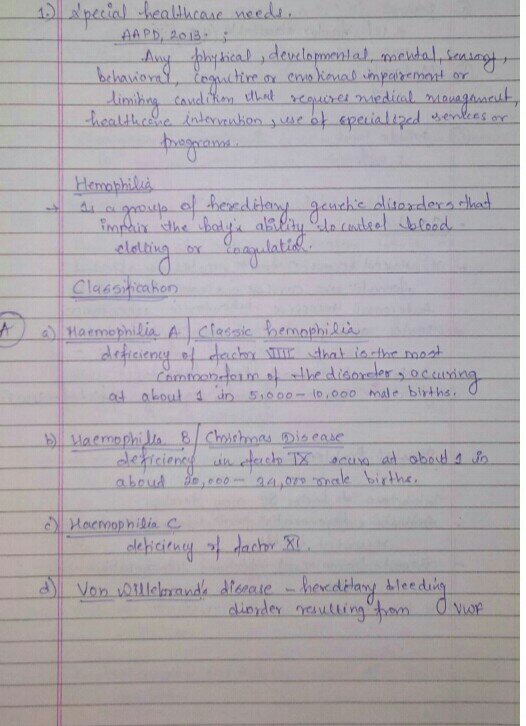 1.) Special healthcare needs.
AAPD, 2013 :
Any physical, developmental, mental, sensory,
behavioral, cognitive or emotional impairement or
limiting condition that requires medical management,
healthcare intervention, use of specialized services or
programs.
Hemophilia
→ Is a group of hereditary genetic disorders that
impair the body's ability to control blood
clotting or coagulation.
Classification
A a) Haemophilia A / Classic hemophilia
deficiency of factor VIII that is the most
common form of the disorder, occuring
at about 1 in 5,000 - 10,000 male births.
b) Haemophilia B / Christmas Disease
deficiency in facto IX occurs at about 1 in
about 20,000 - 34,000 male births.
c) Haemophilia C
deficiency of factor XI.
d) Von Willebrand's disease - hereditary bleeding
disorder resulting from VWF